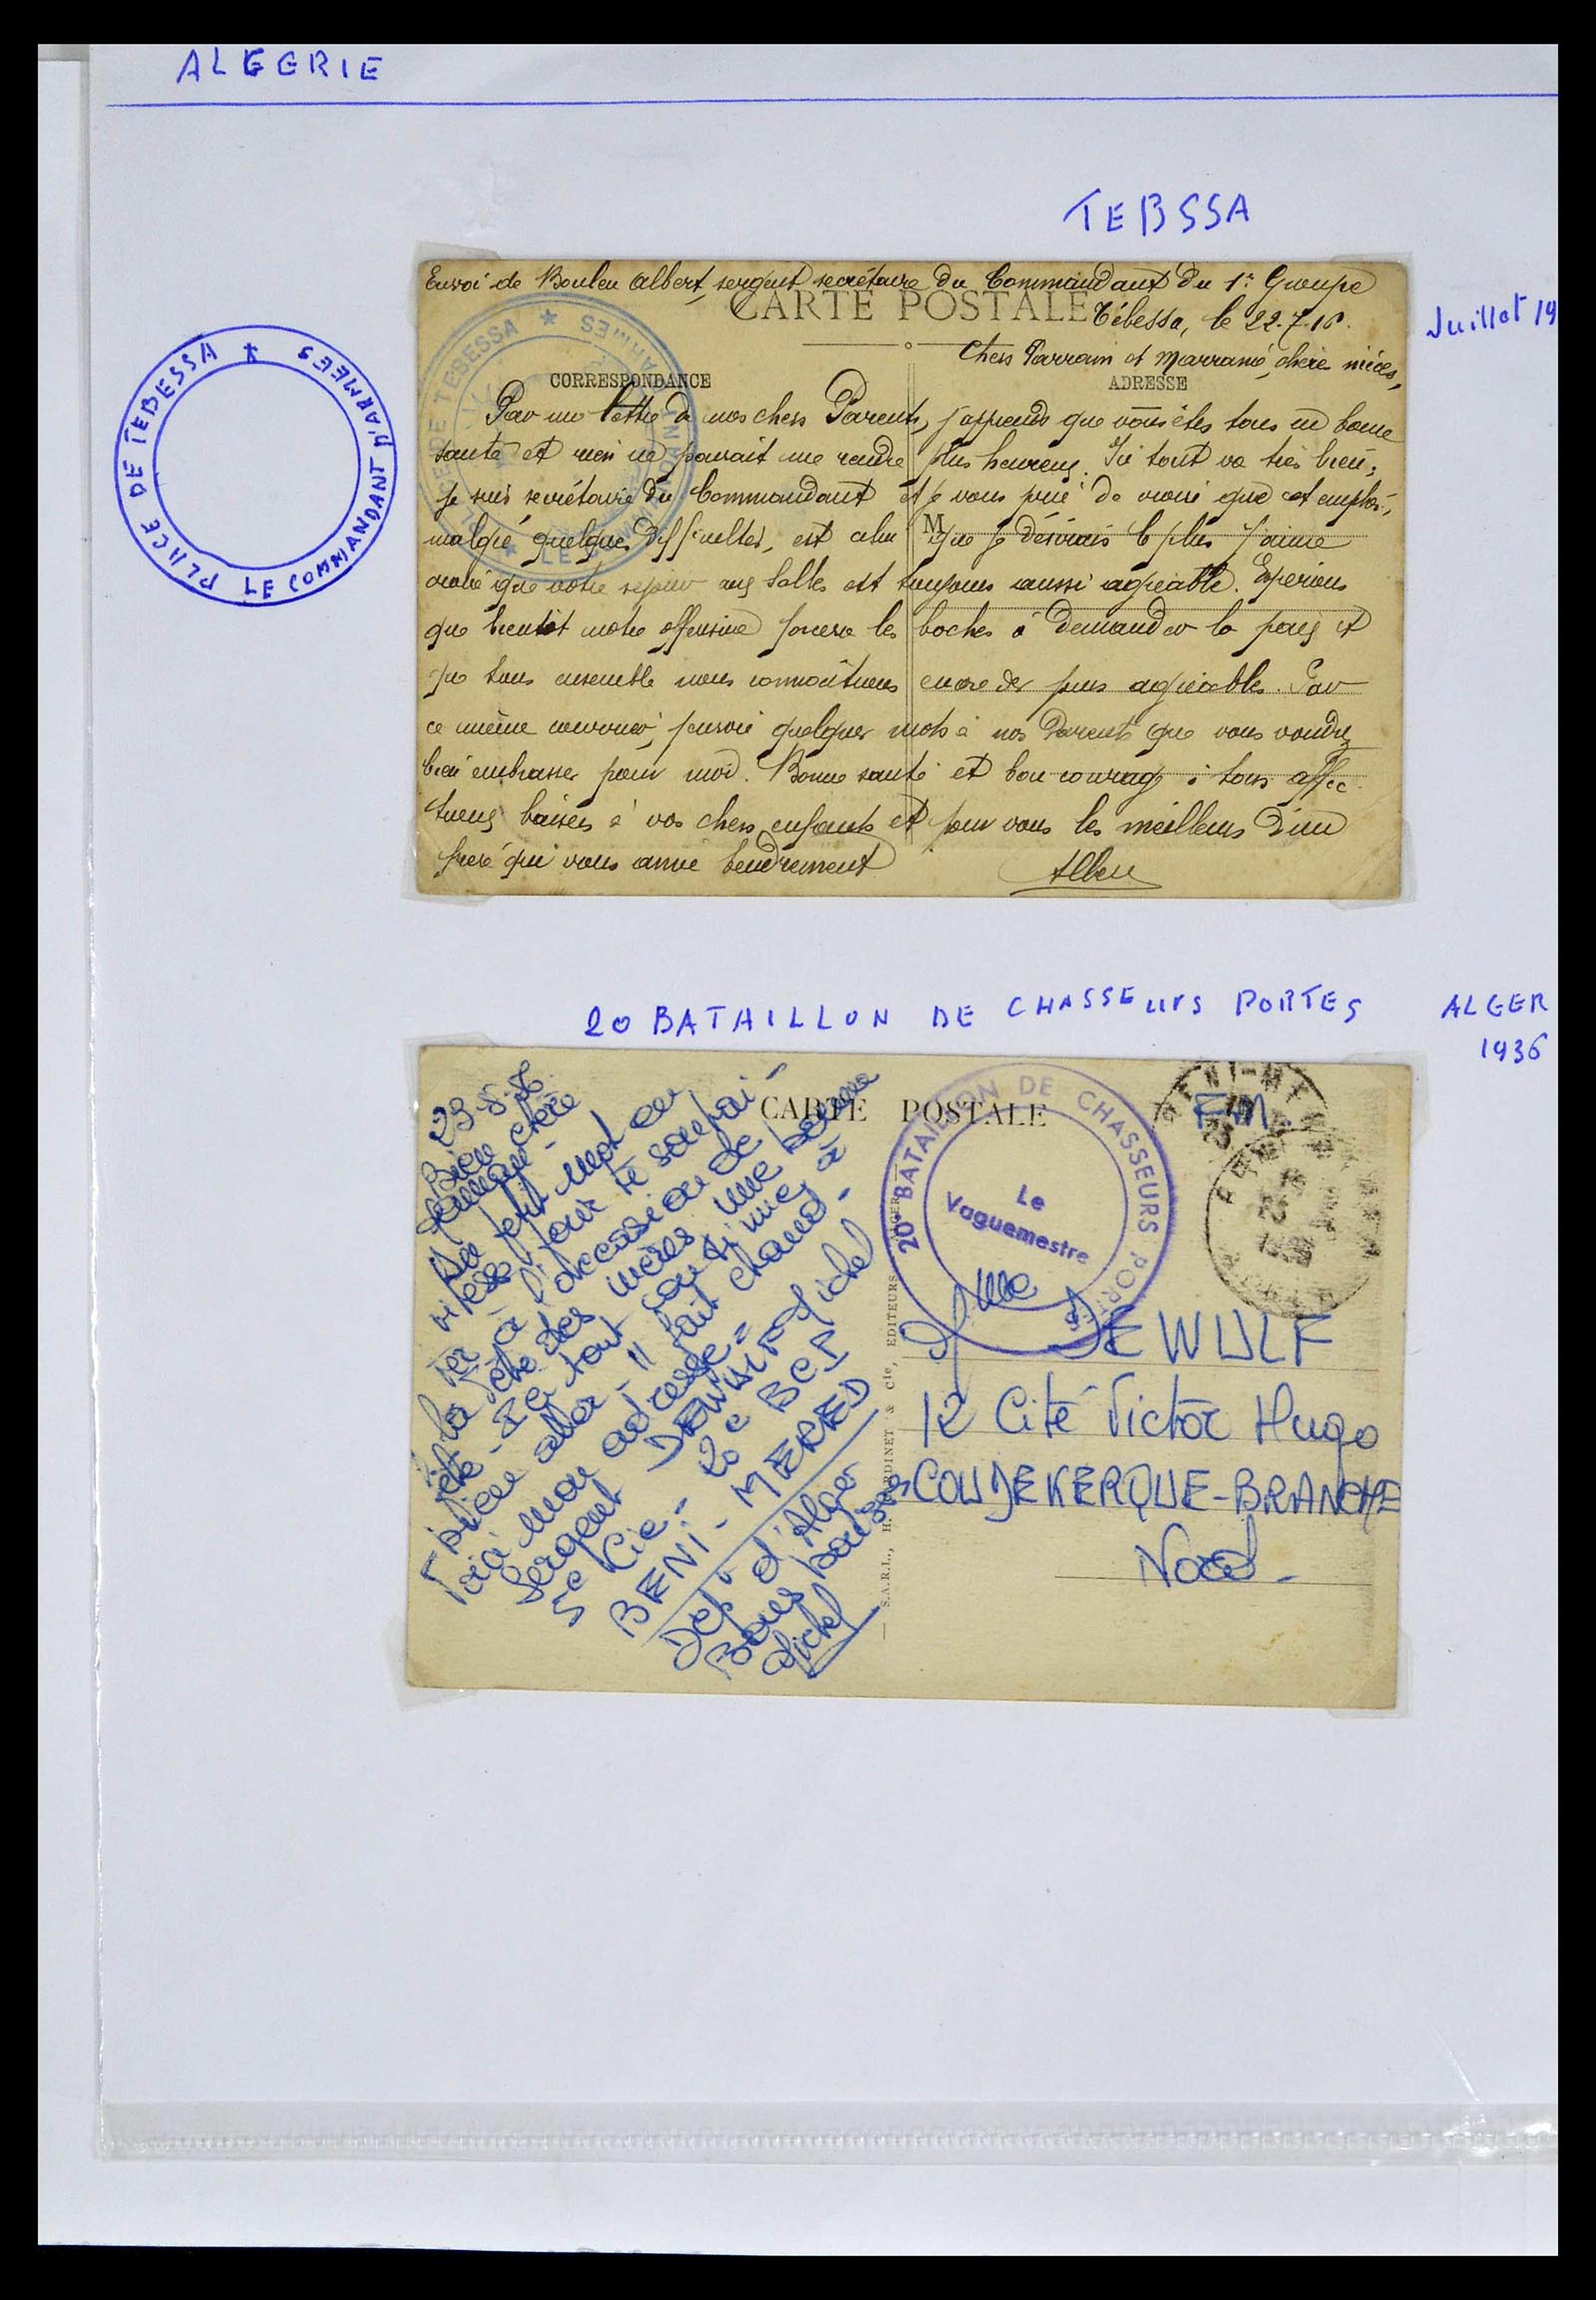 ALGERIE
TEBSSA
Juillet 19
PLACE DE TEBESSA * LE COMMANDANT D'ARMES
Envoi de Boulen Albert, sergent secrétaire du Commandant du 1er Groupe
CARTE POSTALE
Tébessa, le 22.7.16.
Chers Parrain et Marraine, chère nièce,
CORRESPONDANCE
ADRESSE
PLACE DE TEBESSA * LE COMMANDANT D'ARMES *
Par une lettre de nos chers Parents, j'apprends que vous êtes tous en bonne
santé et rien ne pouvait me rendre plus heureux. Ici tout va très bien;
je suis secrétaire du Commandant et je vous prie de croire que cet emploi,
M
malgré quelques difficultés, est celui que je désirais le plus. J'aime
croire que votre séjour aux Salles est toujours aussi agréable. Espérons
que bientôt notre offensive forcera les boches à demander la paix et
que tous ensemble nous connaîtrons encore des jours agréables. Par
ce même courrier, j'envoie quelques mots à nos Parents que vous voudrez
bien embrasser pour moi. Bonne santé et bon courage à tous affec-
tueux baisers à vos chers enfants et pour vous les meilleurs d'un
frère qui vous aime tendrement
Albert
20 BATAILLON DE CHASSEURS PORTES
ALGER
1936
CARTE POSTALE
20e BATAILLON DE CHASSEURS PORTÉS
Le
Vaguemestre
BENI-M
F.M.
23-5-36
Bien chère
Maman -
Un petit mot en
vitesse pour te souhai-
ter à l'occasion de
la fête des mères une bonne
fête - Ici tout continue à
bien aller - Il fait chaud -
Voici mon adresse =
Sergent DEWULF Michel
5e Cie - 20e BCP
BENI-MERED
Dept d'Alger
Bons baisers
Michel
S.A.R.L., H. & Cie, EDITEURS ALGER
Mme DEWULF
12 Cité Victor Hugo
COUDEKERQUE-BRANCHE
Nord -